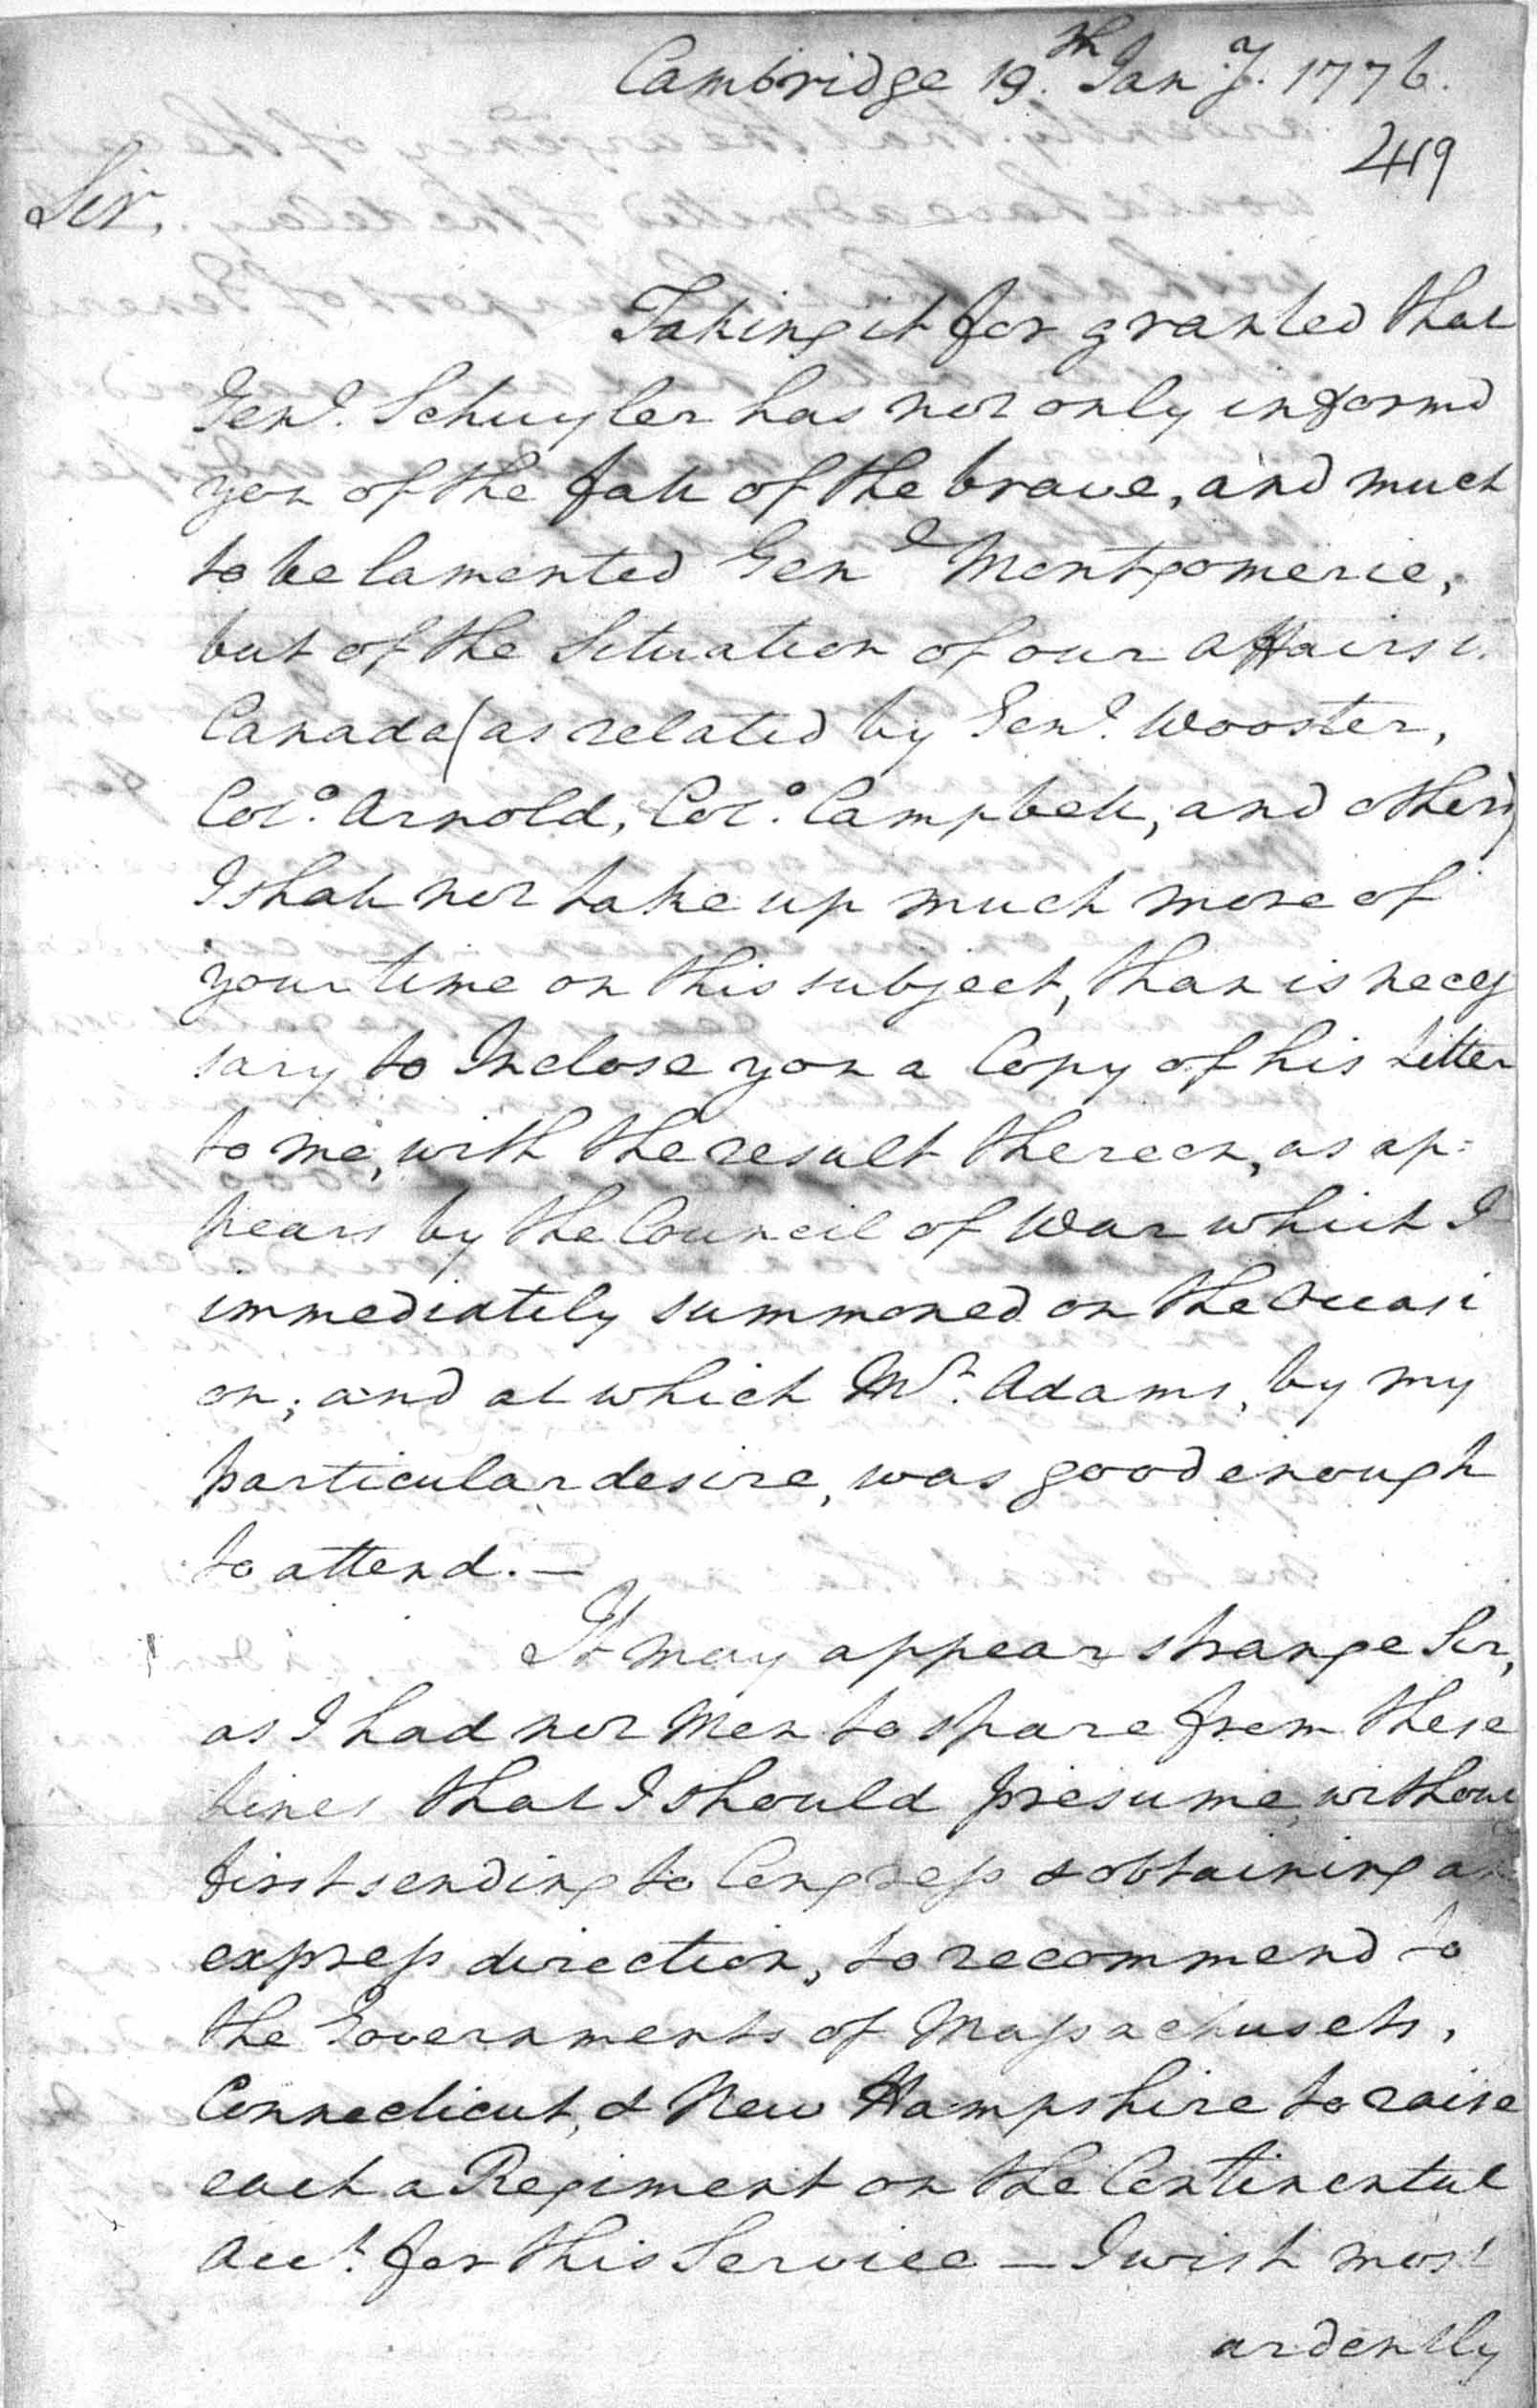 Cambridge 19.th Jan.y. 1776.
419
Sir,
Taking it for granted that
Genl. Schuyler has not only informd
you of the fall of the brave, and much
to be lamented Genl Montgomerie,
but of the Situation of our Affairs i.
Canada (as related by Genl. Wooster,
Colo. Arnold, Colo. Campbell, and others)
I shall not take up much more of
your time on this subject, than is neces
sary to Inclose you a Copy of his Letter
to me, with the result thereon, as ap=
pears by the Council of War which I
immediately summoned on the Occasi
on; and at which Mr. Adams, by my
particular desire, was good enough
to attend. —
It may appear strange Sir,
as I had not Men to spare from these
Lines that I should presume, without
first sending to Congress & obtaining an
express direction, to recommend to
the Governments of Massachusets,
Connecticut, & New Hampshire to raise
each a Regiment on the Continental
Acct. for this Service — I wish most
ardently